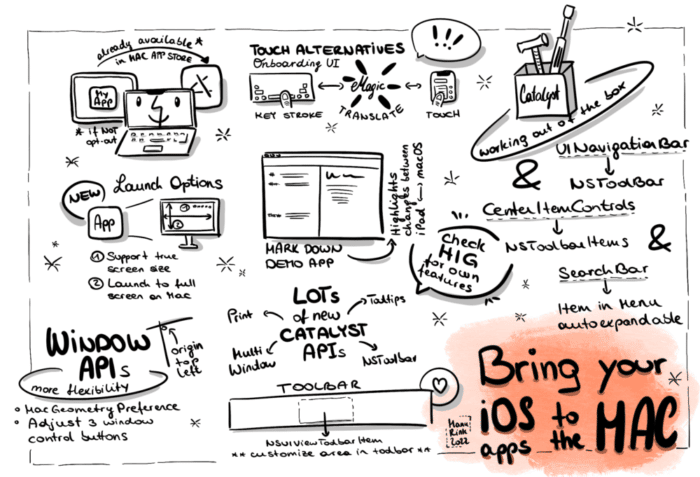 already available *
in MAC APP STORE
My
App
* if NOT
opt-out
TOUCH ALTERNATIVES
Onboarding UI
!!!
Magic
TRANSLATE
KEY STROKE
TOUCH
Catalyst
working out of the box
UINavigationBar
&
NSToolBar
CenterItemControls
NSToolbarItems
&
SearchBar
Item in Menu
autoexpandable
NEW
Launch Options
App
1
2
① Support true
screen size
② Launch to full
screen on Mac
MARK DOWN
DEMO APP
Highlights
changes between
iPad macOS
Check
HIG
for own
features
LOTs
of new
CATALYST
APIs
Print
Tooltips
Multi
Window
NSToolbar
WINDOW
APIs
more flexibility
origin
top
left
Mac Geometry Preference
Adjust 3 window
control buttons
TOOLBAR
NSUIViewToolbarItem
** customize area in toolbar **
Bring your
iOS to
apps the MAC
2022